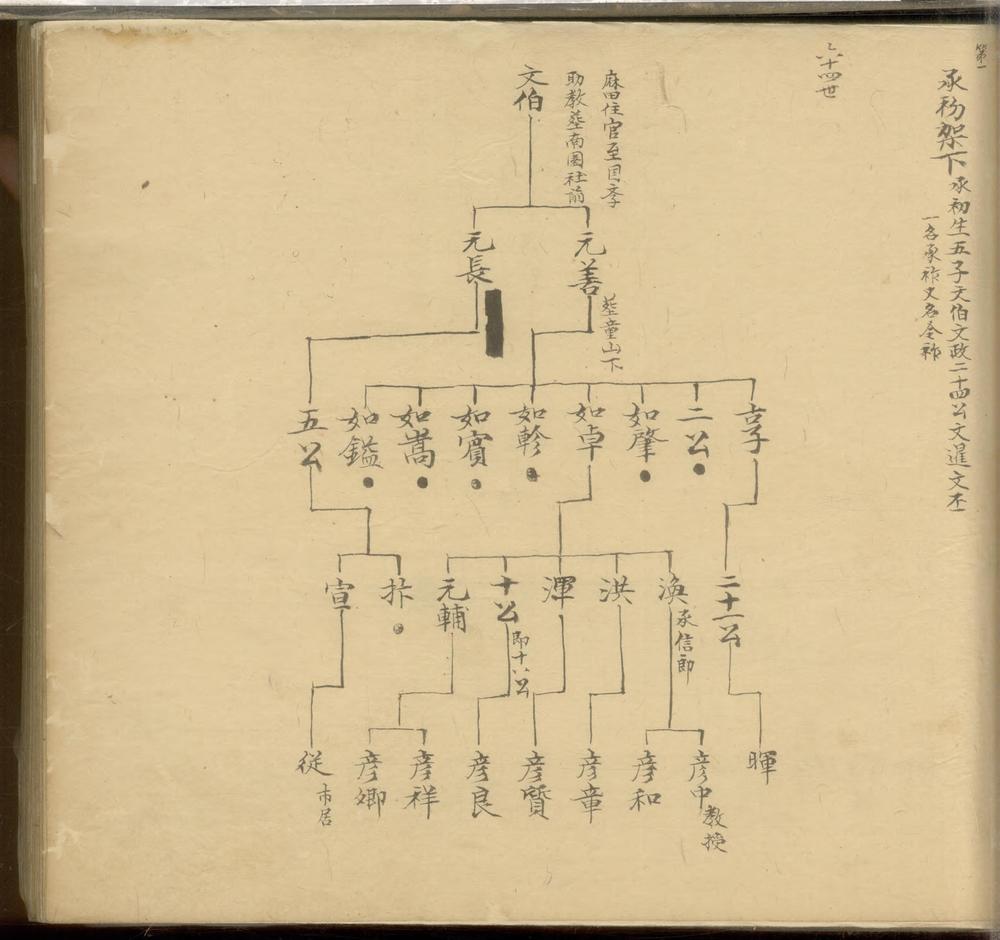 第一
承初架下承初生五子文伯文政二十四公文暹文丕
一名承祚又名令祚
六十四世
麻田住官至国季
助教塟南園社前
文伯
元善
塟童山下
元長
享
二公
如肇
如卓
如軫
如實
如嵩
如鎰
五公
二十一公
渙
承信郎
洪
渾
十公
即十八公
元輔
宣
暉
彦中
教授
彦和
彦章
彦質
彦良
彦祥
彦卿
從
市居